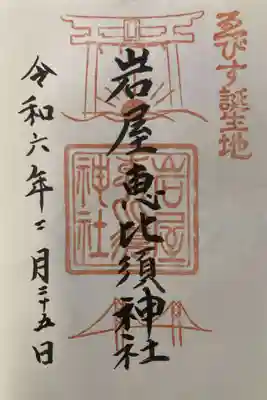 ゑびす誕生地
岩屋恵比須神社
岩屋
恵比須
神社
令和六年二月二十五日